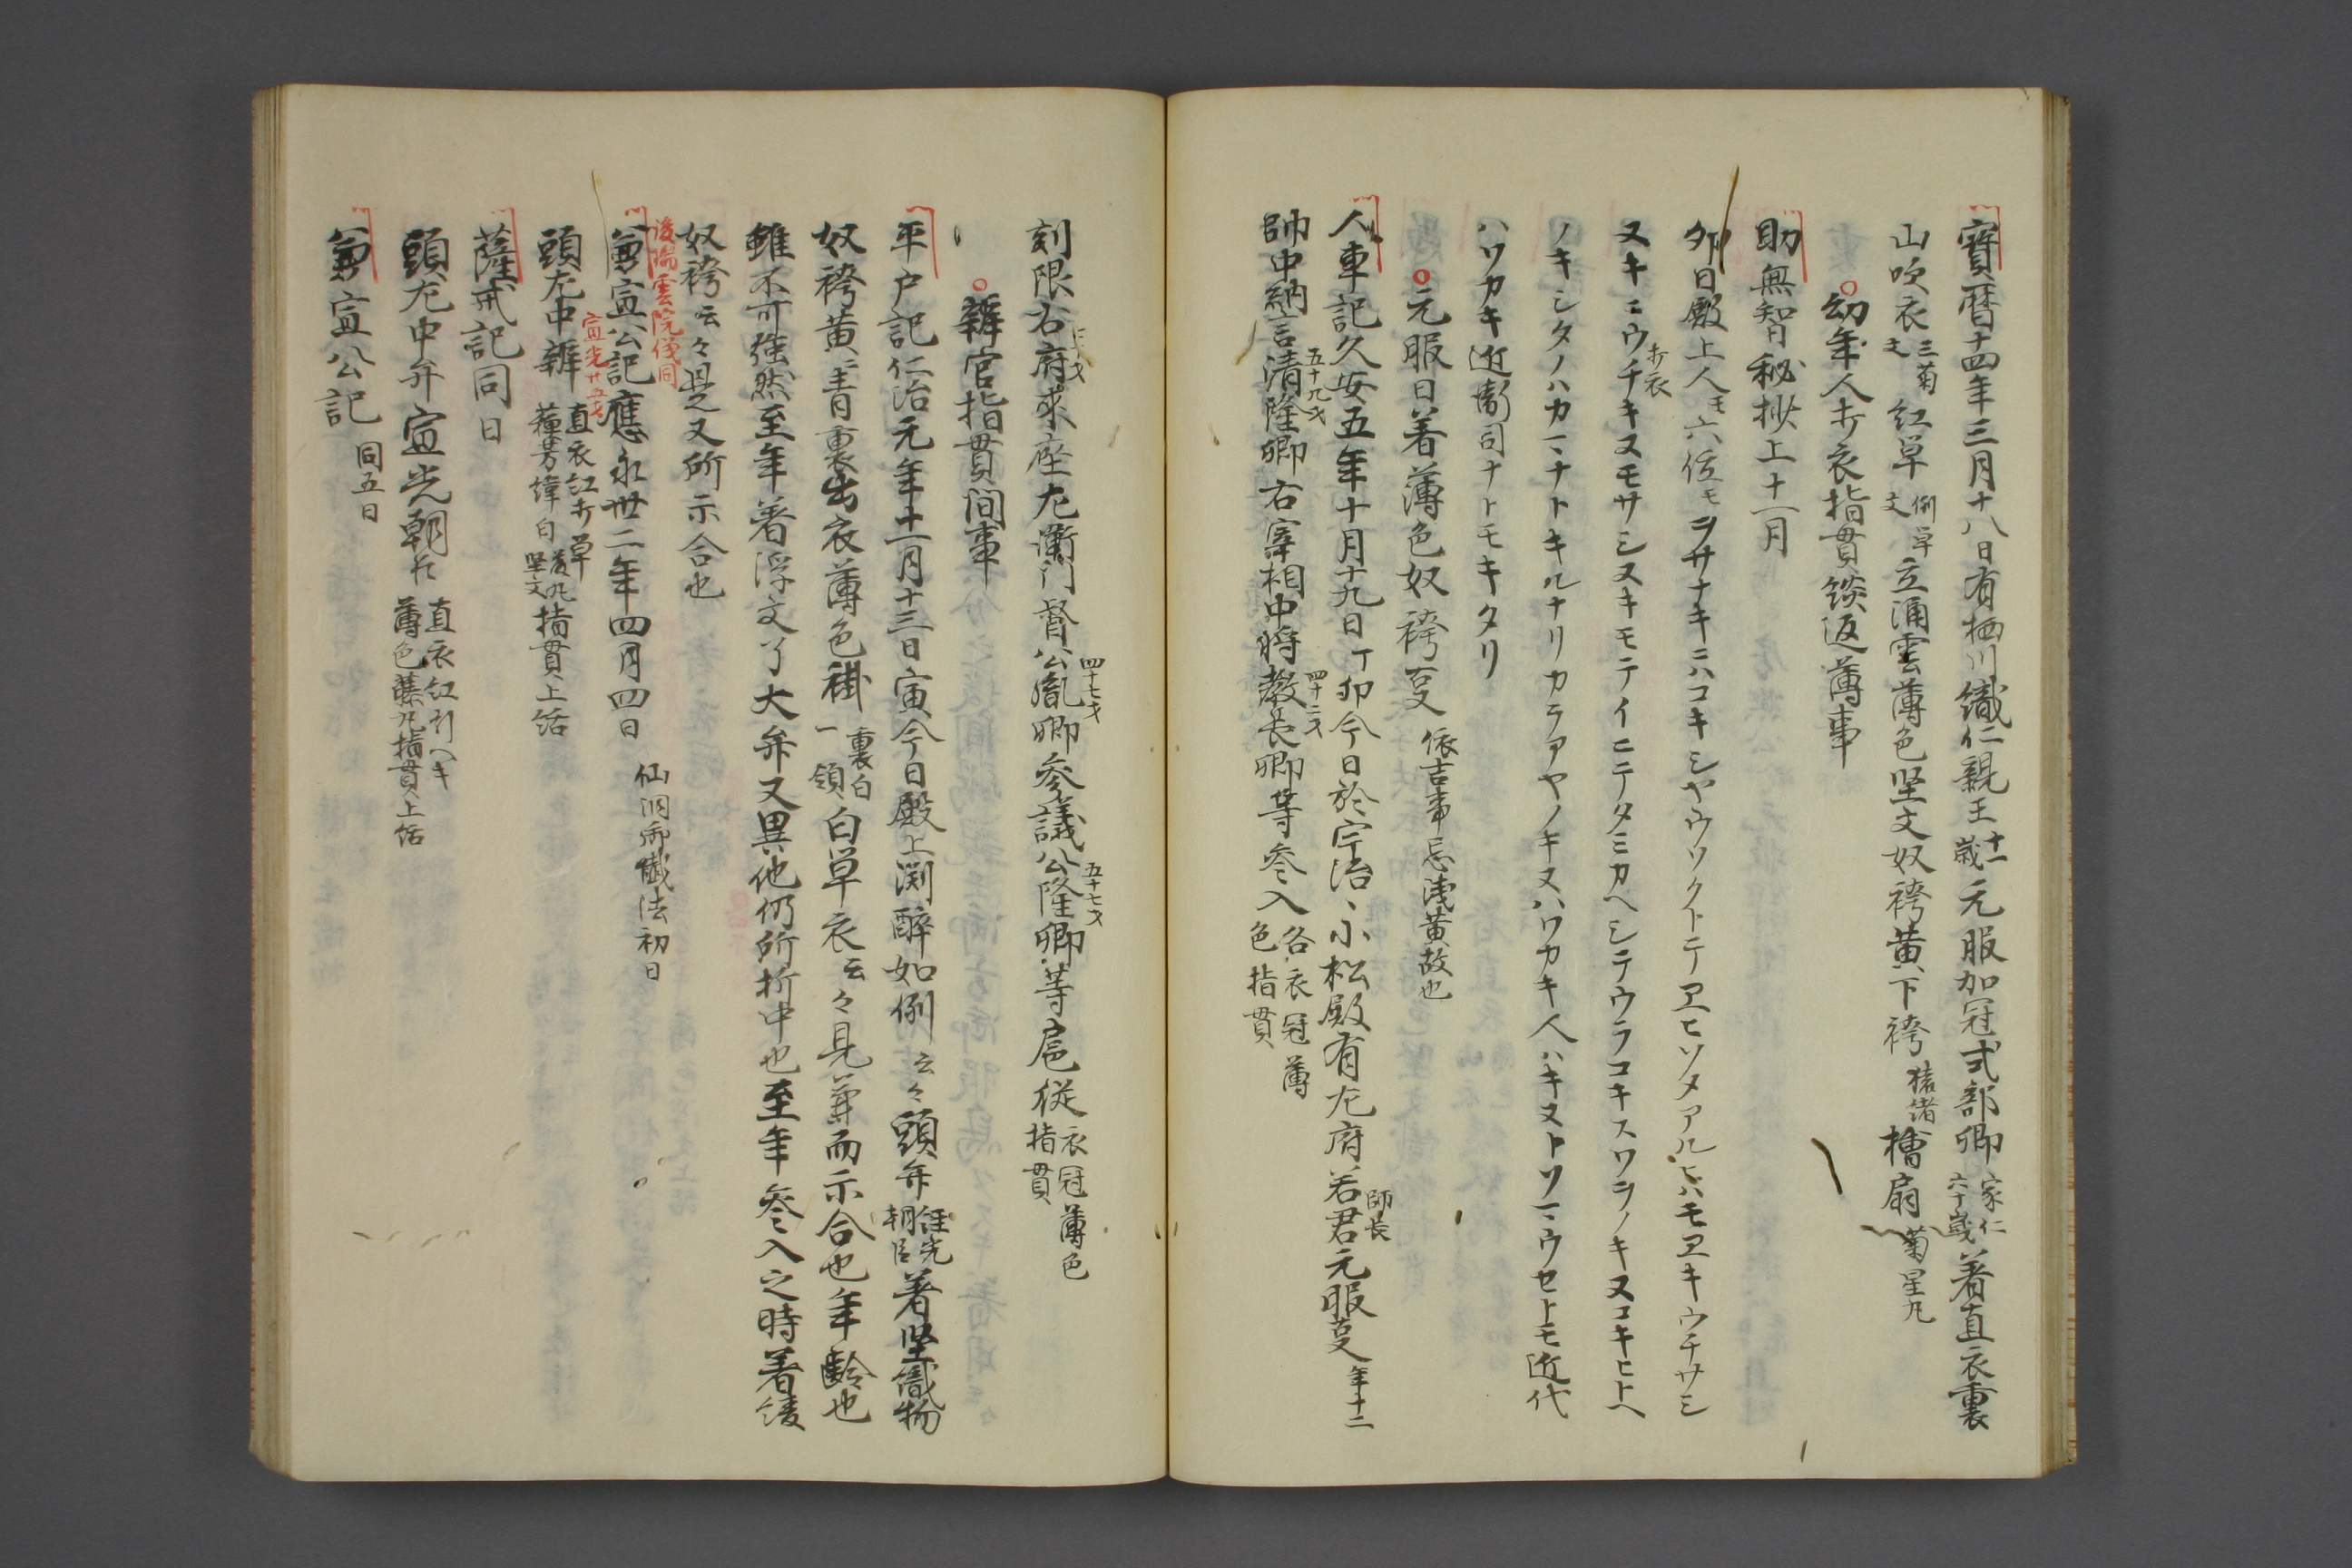 寶暦十四年三月十八日有栖川織仁親王十一歳元服加冠式部卿家仁六十歳著直衣裏
山吹衣三菊文紅単例単文立涌雲薄色堅文奴袴黄下袴猪緒檜扇菊星丸
○幼年人打衣指貫談返薄事
助無智秘抄上十一月
夘日殿上人モ六位モヲサナキニハコキシヤウソクトテヱヒソメアルヒハモヱキウチサシ
ヌキニウチキヌモサシヌキモテイニテタミカヘシテウラコキスワラノキヌコキヒトヘ
打衣
ノキシタノハカマナトキルナリカラアヤノキヌハワカキ人ハキヌトソマウセトモ近代
ハワカキ近衛司ナトモキタリ
○元服日着薄色奴袴叓依吉事忌浅黄故也
人車記久安五年十月十九日丁卯今日於宇治小松殿有左府若君師長元服叓年十二
帥中納言清隆卿五十九才右宰相中将教長卿四十二才等参入各衣冠薄色指貫
刻限右府乗座左衛門督公胤卿四十七才参議公隆卿五十七才等扈従衣冠薄色指貫
○辨官指貫間事
平戸記仁治元年十一月十三日寅今日殿上渕酔如例云々頭弁経光朝臣著堅織物
奴袴黄青裏出衣薄色褂裏白一領白単衣云々見苐而示合也年齢也
雖不可強然至年著浮文了大弁又異他仍所折中也至年参入之時著綾
奴袴云々是又所示合也
後陽雲院儀同
兼宣公記應永卅二年四月四日仙洞御懺法初日
頭左中辨宣光廿五才直衣紅打単蘓芳緯白藤丸堅文指貫上括
薩戒記同日
頭左中弁宣光朝臣直衣紅引ヘキ薄色藤丸指貫上括
兼宣公記同五日